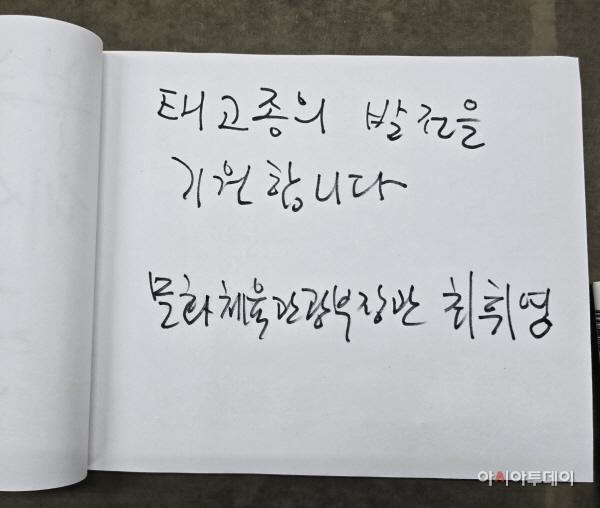 태고종의 발전을
기원합니다
문화체육관광부장관 최휘영
아시아투데이